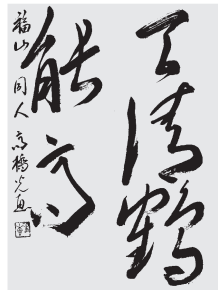 天清鶴
能高
福山同人 高橋光魚